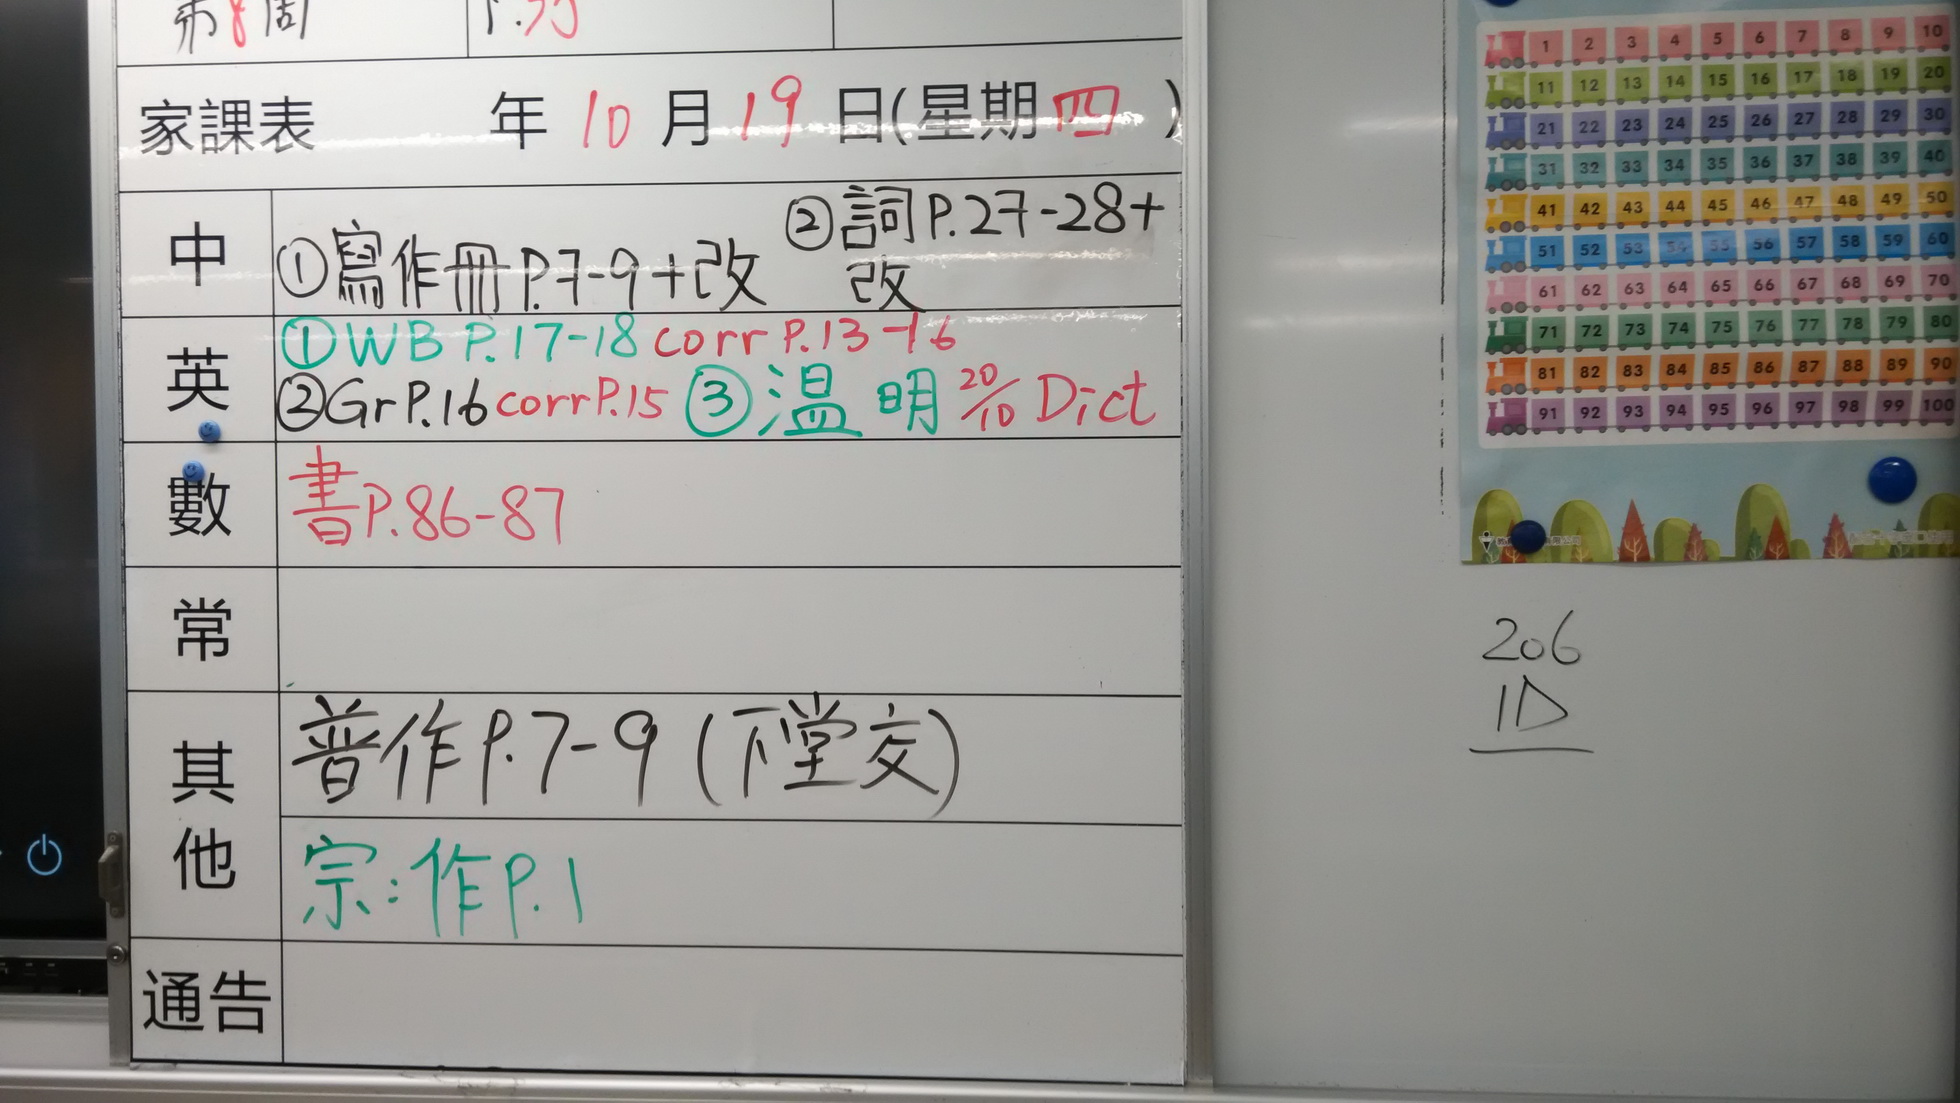 第8周 P.
家課表 年 10 月 19 日(星期四)
中 ①寫作冊P.7-9+改 ②詞P.27-28+
改
英 ①WB P.17-18 corr P.13-16
②Gr P.16 corr P.15 ③溫 明 20/10 Dict
數 書P.86-87
常
其他 普作P.7-9(下堂交)
宗:作P.1
通告
1 2 3 4 5 6 7 8 9 10
11 12 13 14 15 16 17 18 19 20
21 22 23 24 25 26 27 28 29 30
31 32 33 34 35 36 37 38 39 40
41 42 43 44 45 46 47 48 49 50
51 52 53 54 55 56 57 58 59 60
61 62 63 64 65 66 67 68 69 70
71 72 73 74 75 76 77 78 79 80
81 82 83 84 85 86 87 88 89 90
91 92 93 94 95 96 97 98 99 100
206
1D